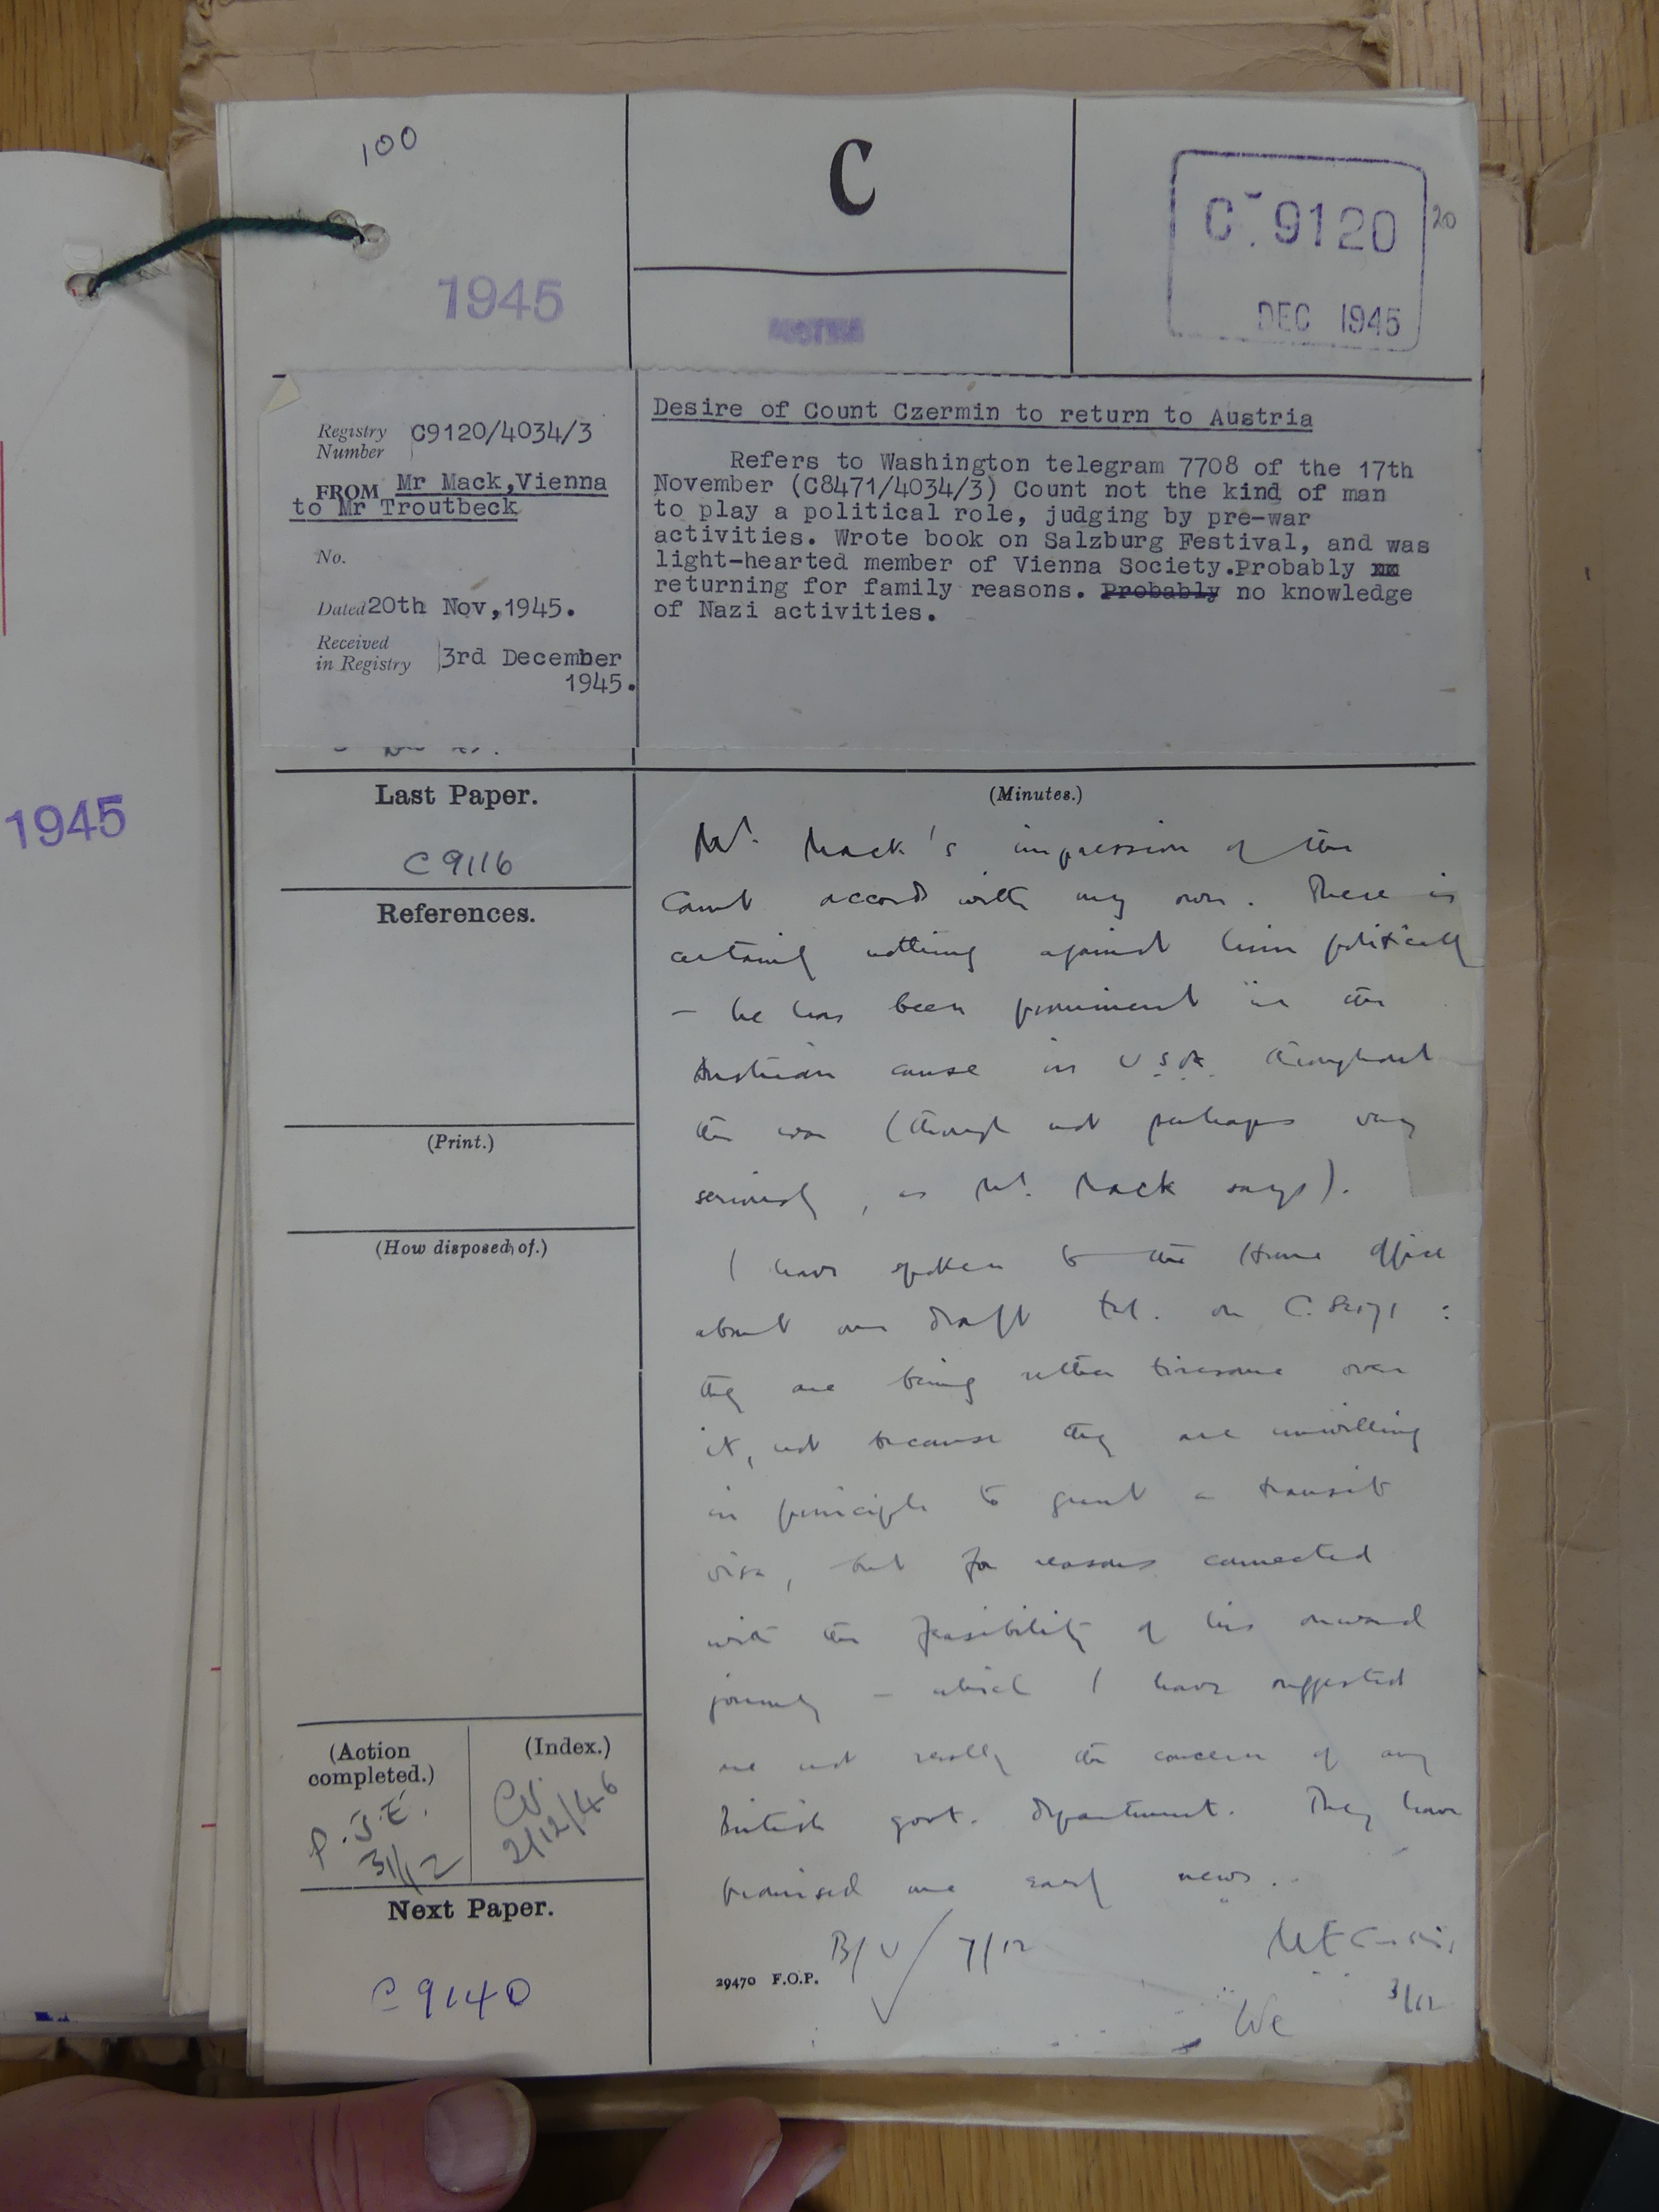 100
C
C 9120
20
DEC 1945
1945
AUSTRIA
Registry Number C9120/4034/3
FROM Mr Mack, Vienna
to Mr Troutbeck
No.
Dated 20th Nov, 1945.
Received in Registry 3rd December
1945.
Desire of Count Czermin to return to Austria
Refers to Washington telegram 7708 of the 17th
November (C8471/4034/3) Count not the kind of man
to play a political role, judging by pre-war
activities. Wrote book on Salzburg Festival, and was
light-hearted member of Vienna Society. Probably xx
returning for family reasons. Probably no knowledge
of Nazi activities.
Last Paper.
C 9116
References.
(Print.)
(How disposed of.)
(Action completed.)
P.J.E.
31/12
(Index.)
2/12/46
Next Paper.
C 9140
(Minutes.)
Mr. Mack's impression of the
Count accords with my own. There is
certainly nothing against him politically
– he has been prominent in the
Austrian cause in U.S.A. throughout
the war (though not perhaps very
seriously, as Mr. Mack says).
I have spoken to the Home Office
about our draft tel. on C. 8471 :
they are being rather tiresome over
it, not because they are unwilling
in principle to grant a transit
visa, but for reasons connected
with the feasibility of his onward
journey – which I have suggested
are not really the concern of any
British govt. department. They have
promised me early news.
B/U 7/12
3/12
29470 F.O.P.
We
1945